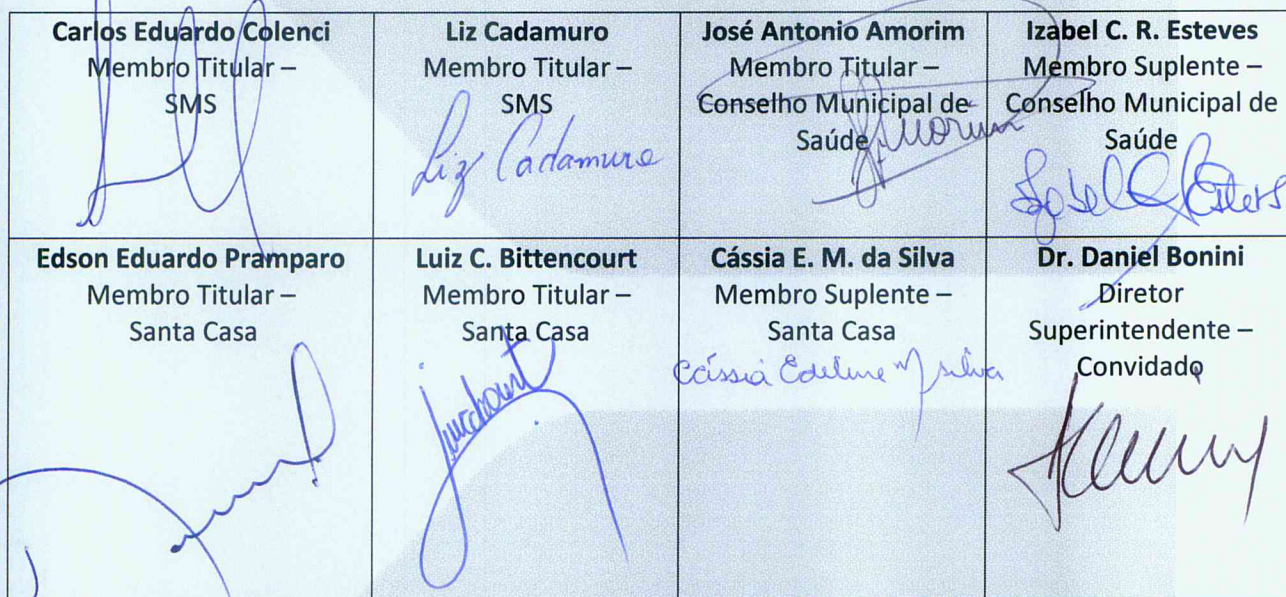 Carlos Eduardo Colenci
Membro Titular –
SMS
Liz Cadamuro
Membro Titular –
SMS
Liz Cadamuro
José Antonio Amorim
Membro Titular –
Conselho Municipal de
Saúde
Amorim
Izabel C. R. Esteves
Membro Suplente –
Conselho Municipal de
Saúde
Edson Eduardo Pramparo
Membro Titular –
Santa Casa
Luiz C. Bittencourt
Membro Titular –
Santa Casa
Cássia E. M. da Silva
Membro Suplente –
Santa Casa
Cássia Edeline M Silva
Dr. Daniel Bonini
Diretor
Superintendente –
Convidado